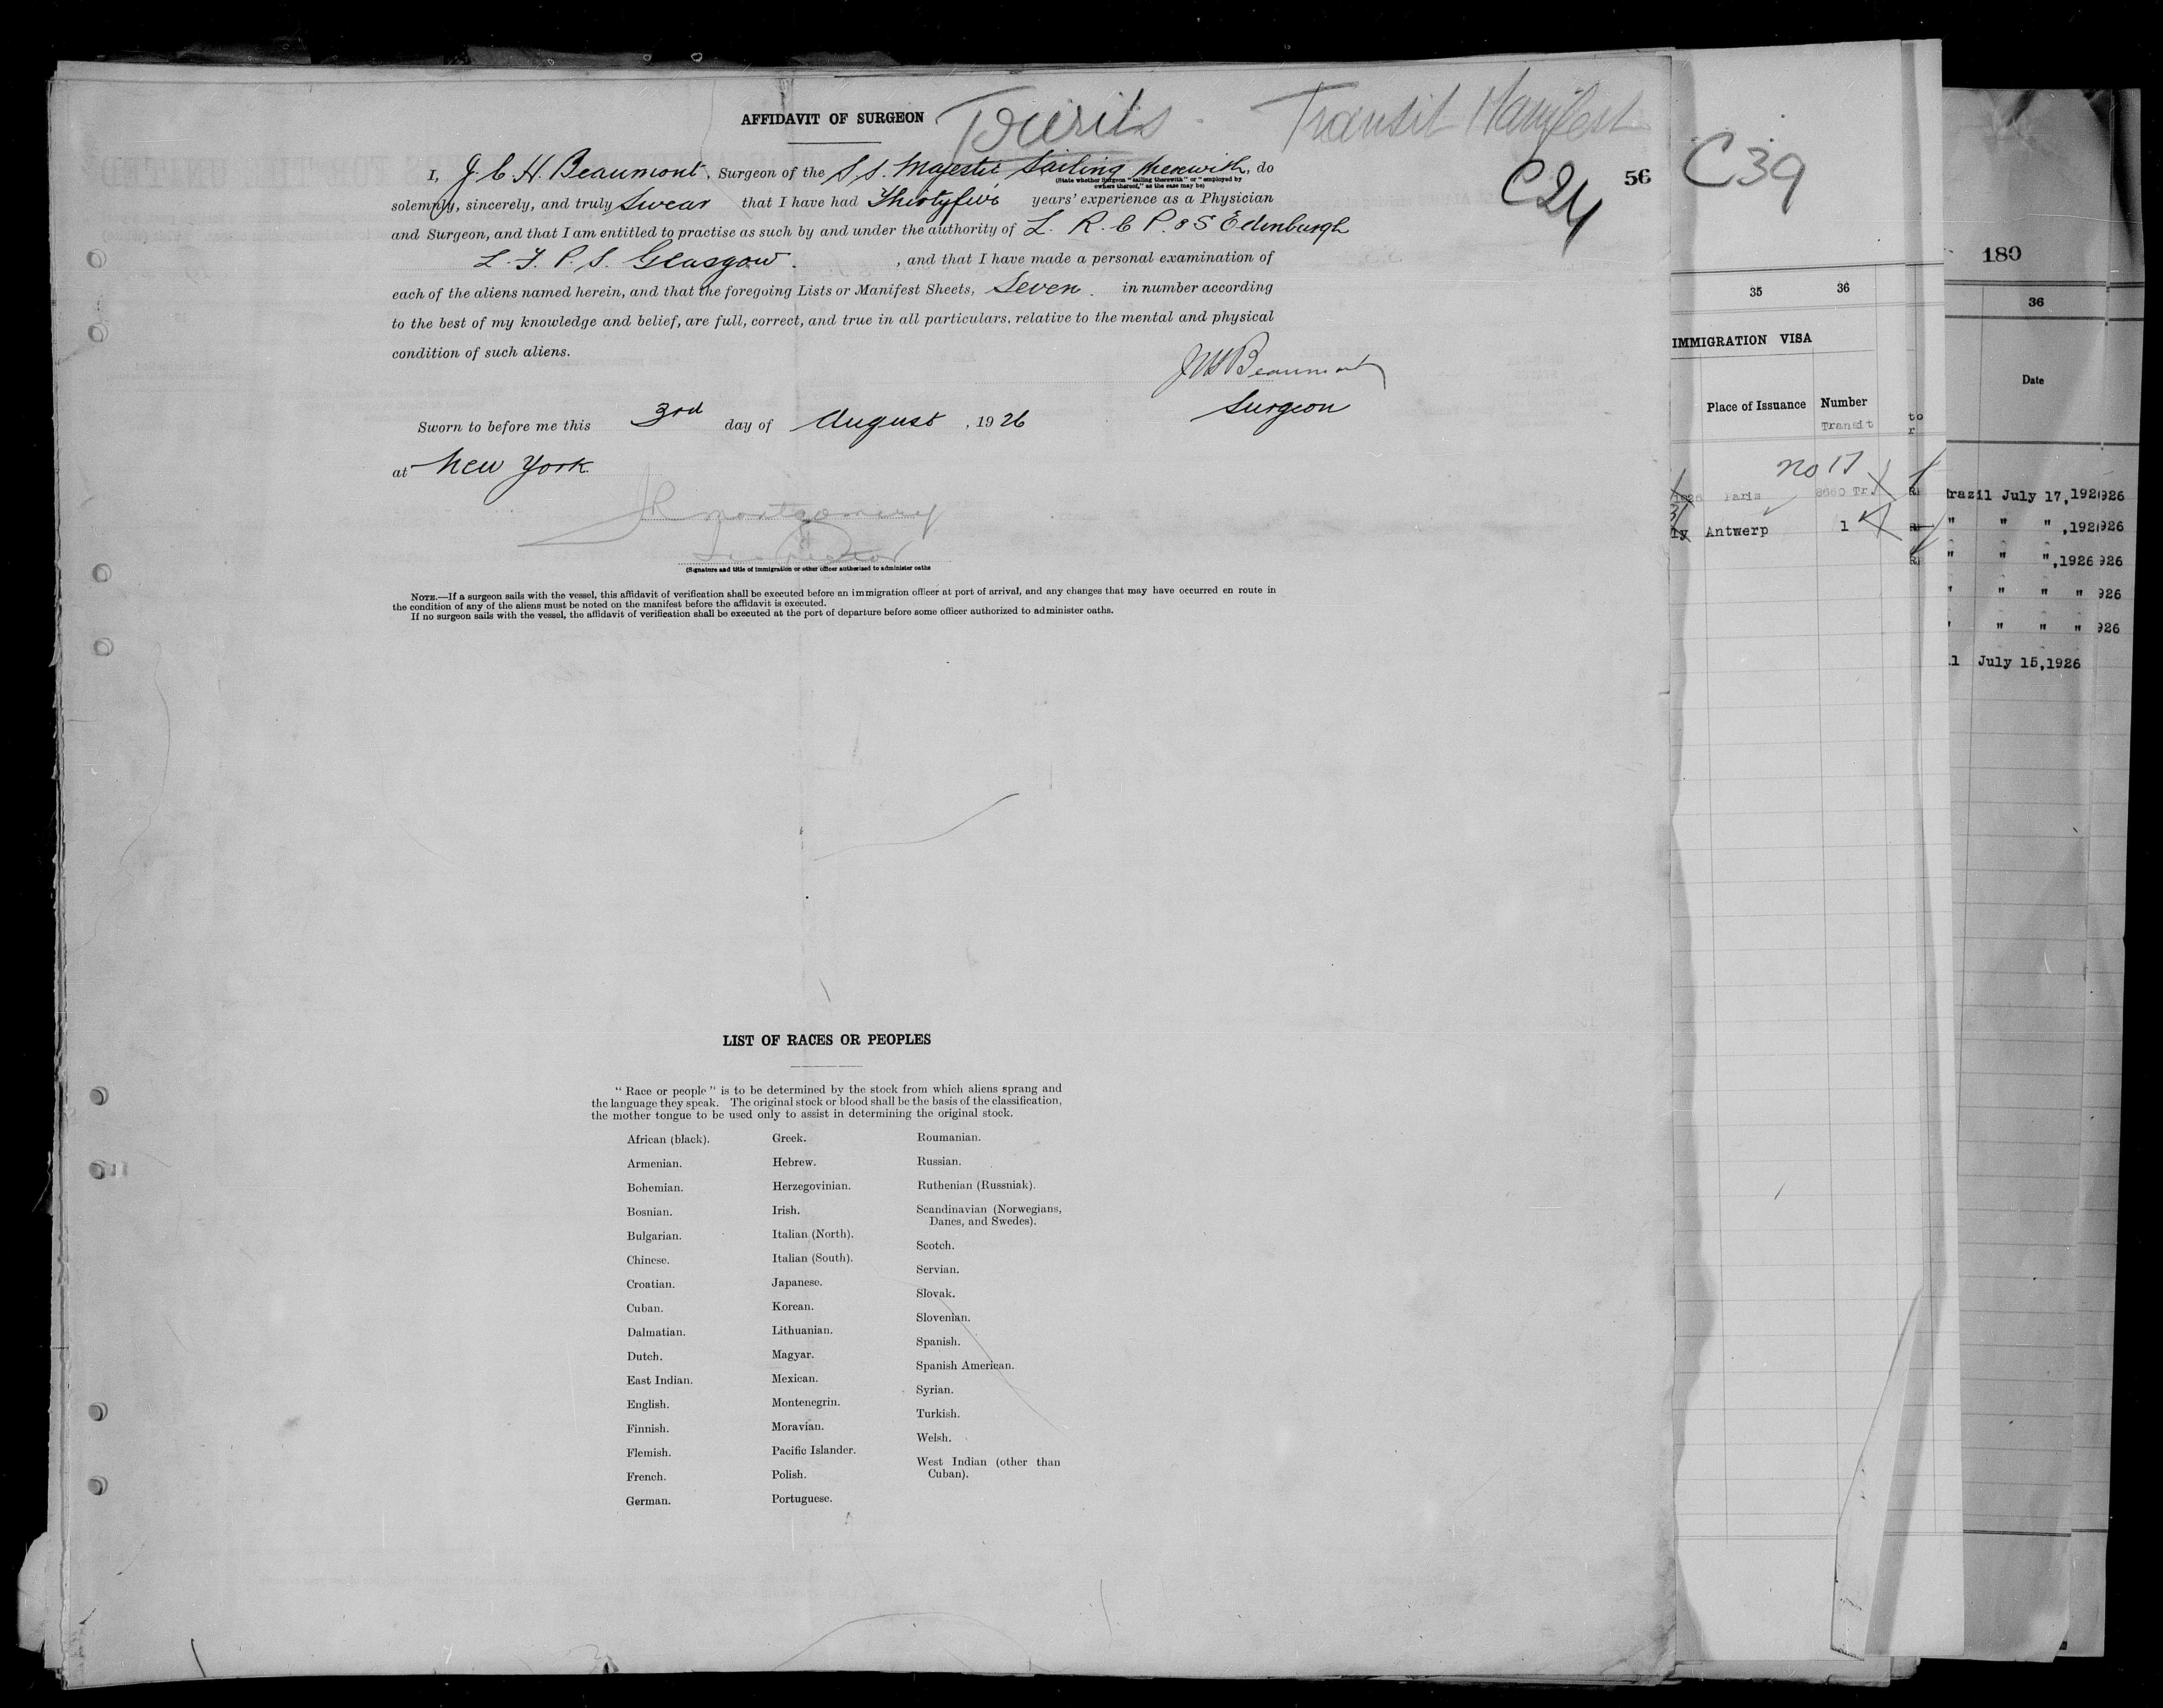 AFFIDAVIT OF SURGEON
Tourists
Transit Manifest
C24
56
I, J. C. H. Beaumont, Surgeon of the S.S. Majestic Sailing therewith, do
(State whether Surgeon "sailing therewith" or "employed by
owners thereof," as the case may be)
solemnly, sincerely, and truly Swear that I have had Thirtyfive years' experience as a Physician
and Surgeon, and that I am entitled to practise as such by and under the authority of L. R. C P. & S Edinburgh
L. F. P. S. Glasgow. , and that I have made a personal examination of
each of the aliens named herein, and that the foregoing Lists or Manifest Sheets, Seven. in number according
to the best of my knowledge and belief, are full, correct, and true in all particulars, relative to the mental and physical
condition of such aliens.
JCHBeaumont
Surgeon
Sworn to before me this 3rd day of August, 1926
at New York.
JR Montgomery
Inspector
(Signature and title of immigration or other officer authorized to administer oaths
NOTE.—If a surgeon sails with the vessel, this affidavit of verification shall be executed before an immigration officer at port of arrival, and any changes that may have occurred en route in
the condition of any of the aliens must be noted on the manifest before the affidavit is executed.
If no surgeon sails with the vessel, the affidavit of verification shall be executed at the port of departure before some officer authorized to administer oaths.
LIST OF RACES OR PEOPLES
"Race or people" is to be determined by the stock from which aliens sprang and
the language they speak. The original stock or blood shall be the basis of the classification,
the mother tongue to be used only to assist in determining the original stock.
African (black).
Armenian.
Bohemian.
Bosnian.
Bulgarian.
Chinese.
Croatian.
Cuban.
Dalmatian.
Dutch.
East Indian.
English.
Finnish.
Flemish.
French.
German.
Greek.
Hebrew.
Herzegovinian.
Irish.
Italian (North).
Italian (South).
Japanese.
Korean.
Lithuanian.
Magyar.
Mexican.
Montenegrin.
Moravian.
Pacific Islander.
Polish.
Portuguese.
Roumanian.
Russian.
Ruthenian (Russniak).
Scandinavian (Norwegians,
Danes, and Swedes).
Scotch.
Servian.
Slovak.
Slovenian.
Spanish.
Spanish American.
Syrian.
Turkish.
Welsh.
West Indian (other than
Cuban).
C39
35 36
IMMIGRATION VISA
Place of Issuance Number
Transit
no 17
1926 Paris 8660 Tr.
Antwerp 1
to
r
180
36
Date
razil July 17, 1926
" " " ,1926
" " ",1926 926
" " " " 926
" " " " 926
l July 15,1926